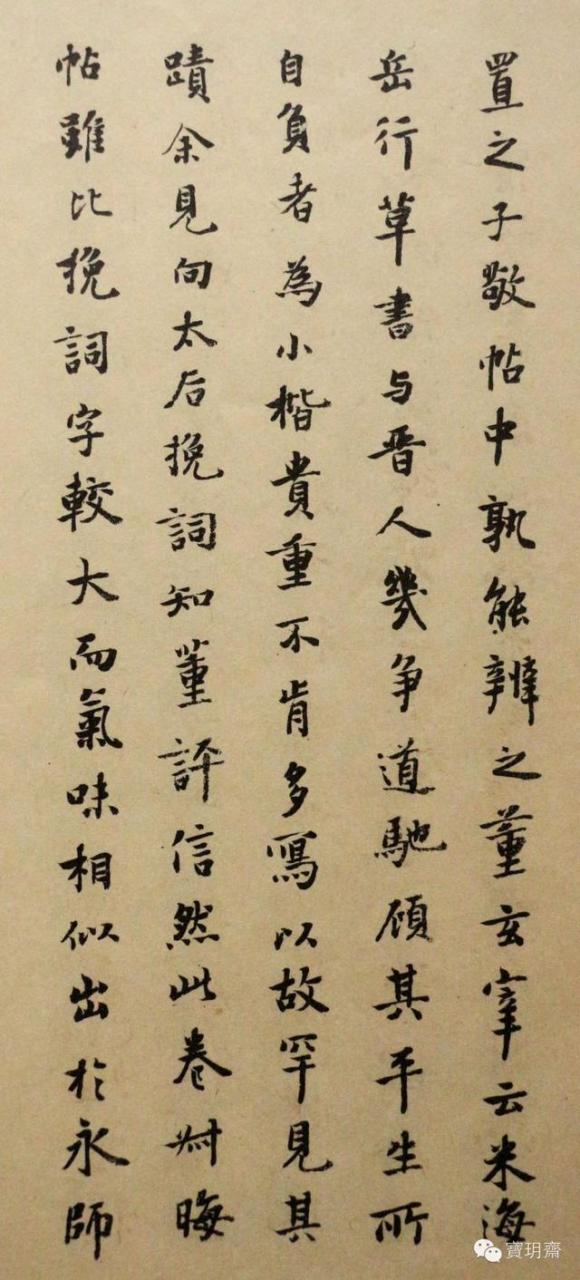 置之子敬帖中孰能辨之董玄宰云米海
岳行草書与晋人幾争道馳頋其平生所
自負者為小楷貴重不肯多寫以故罕見其
蹟余見向太后挽詞知董評信然此卷尌晦
帖雖比挽詞字較大而氣味相似出於永師
寶玥齋